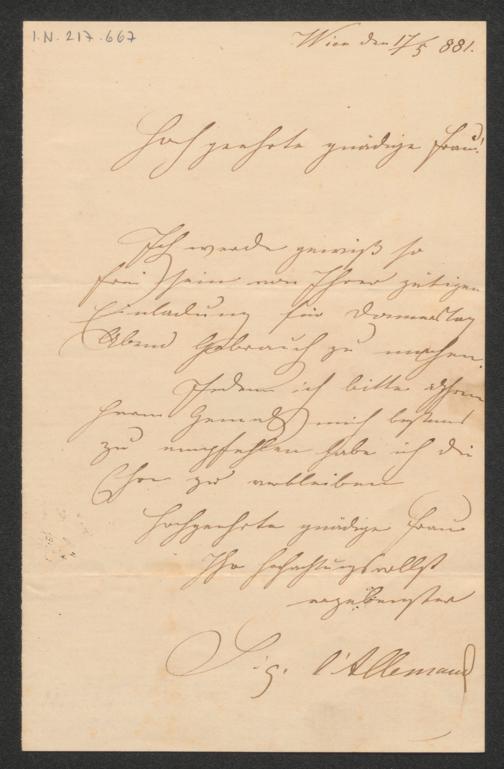 I.N. 217.667
Wien den 17/5 881.
Hochgeehrte gnädige Frau!
Ich werde gewiß so
frei sein von Ihrer gütigen
Einladung für Donnerstag
Abend Gebrauch zu machen.
Indem ich bitte Ihrem
Herrn Gemal mich bestens
zu empfehlen habe ich die
Ehre zu verbleiben
Hochgeehrte gnädige Frau
Ihr hochachtungsvollst
ergebenster
Sig. l'Allemand